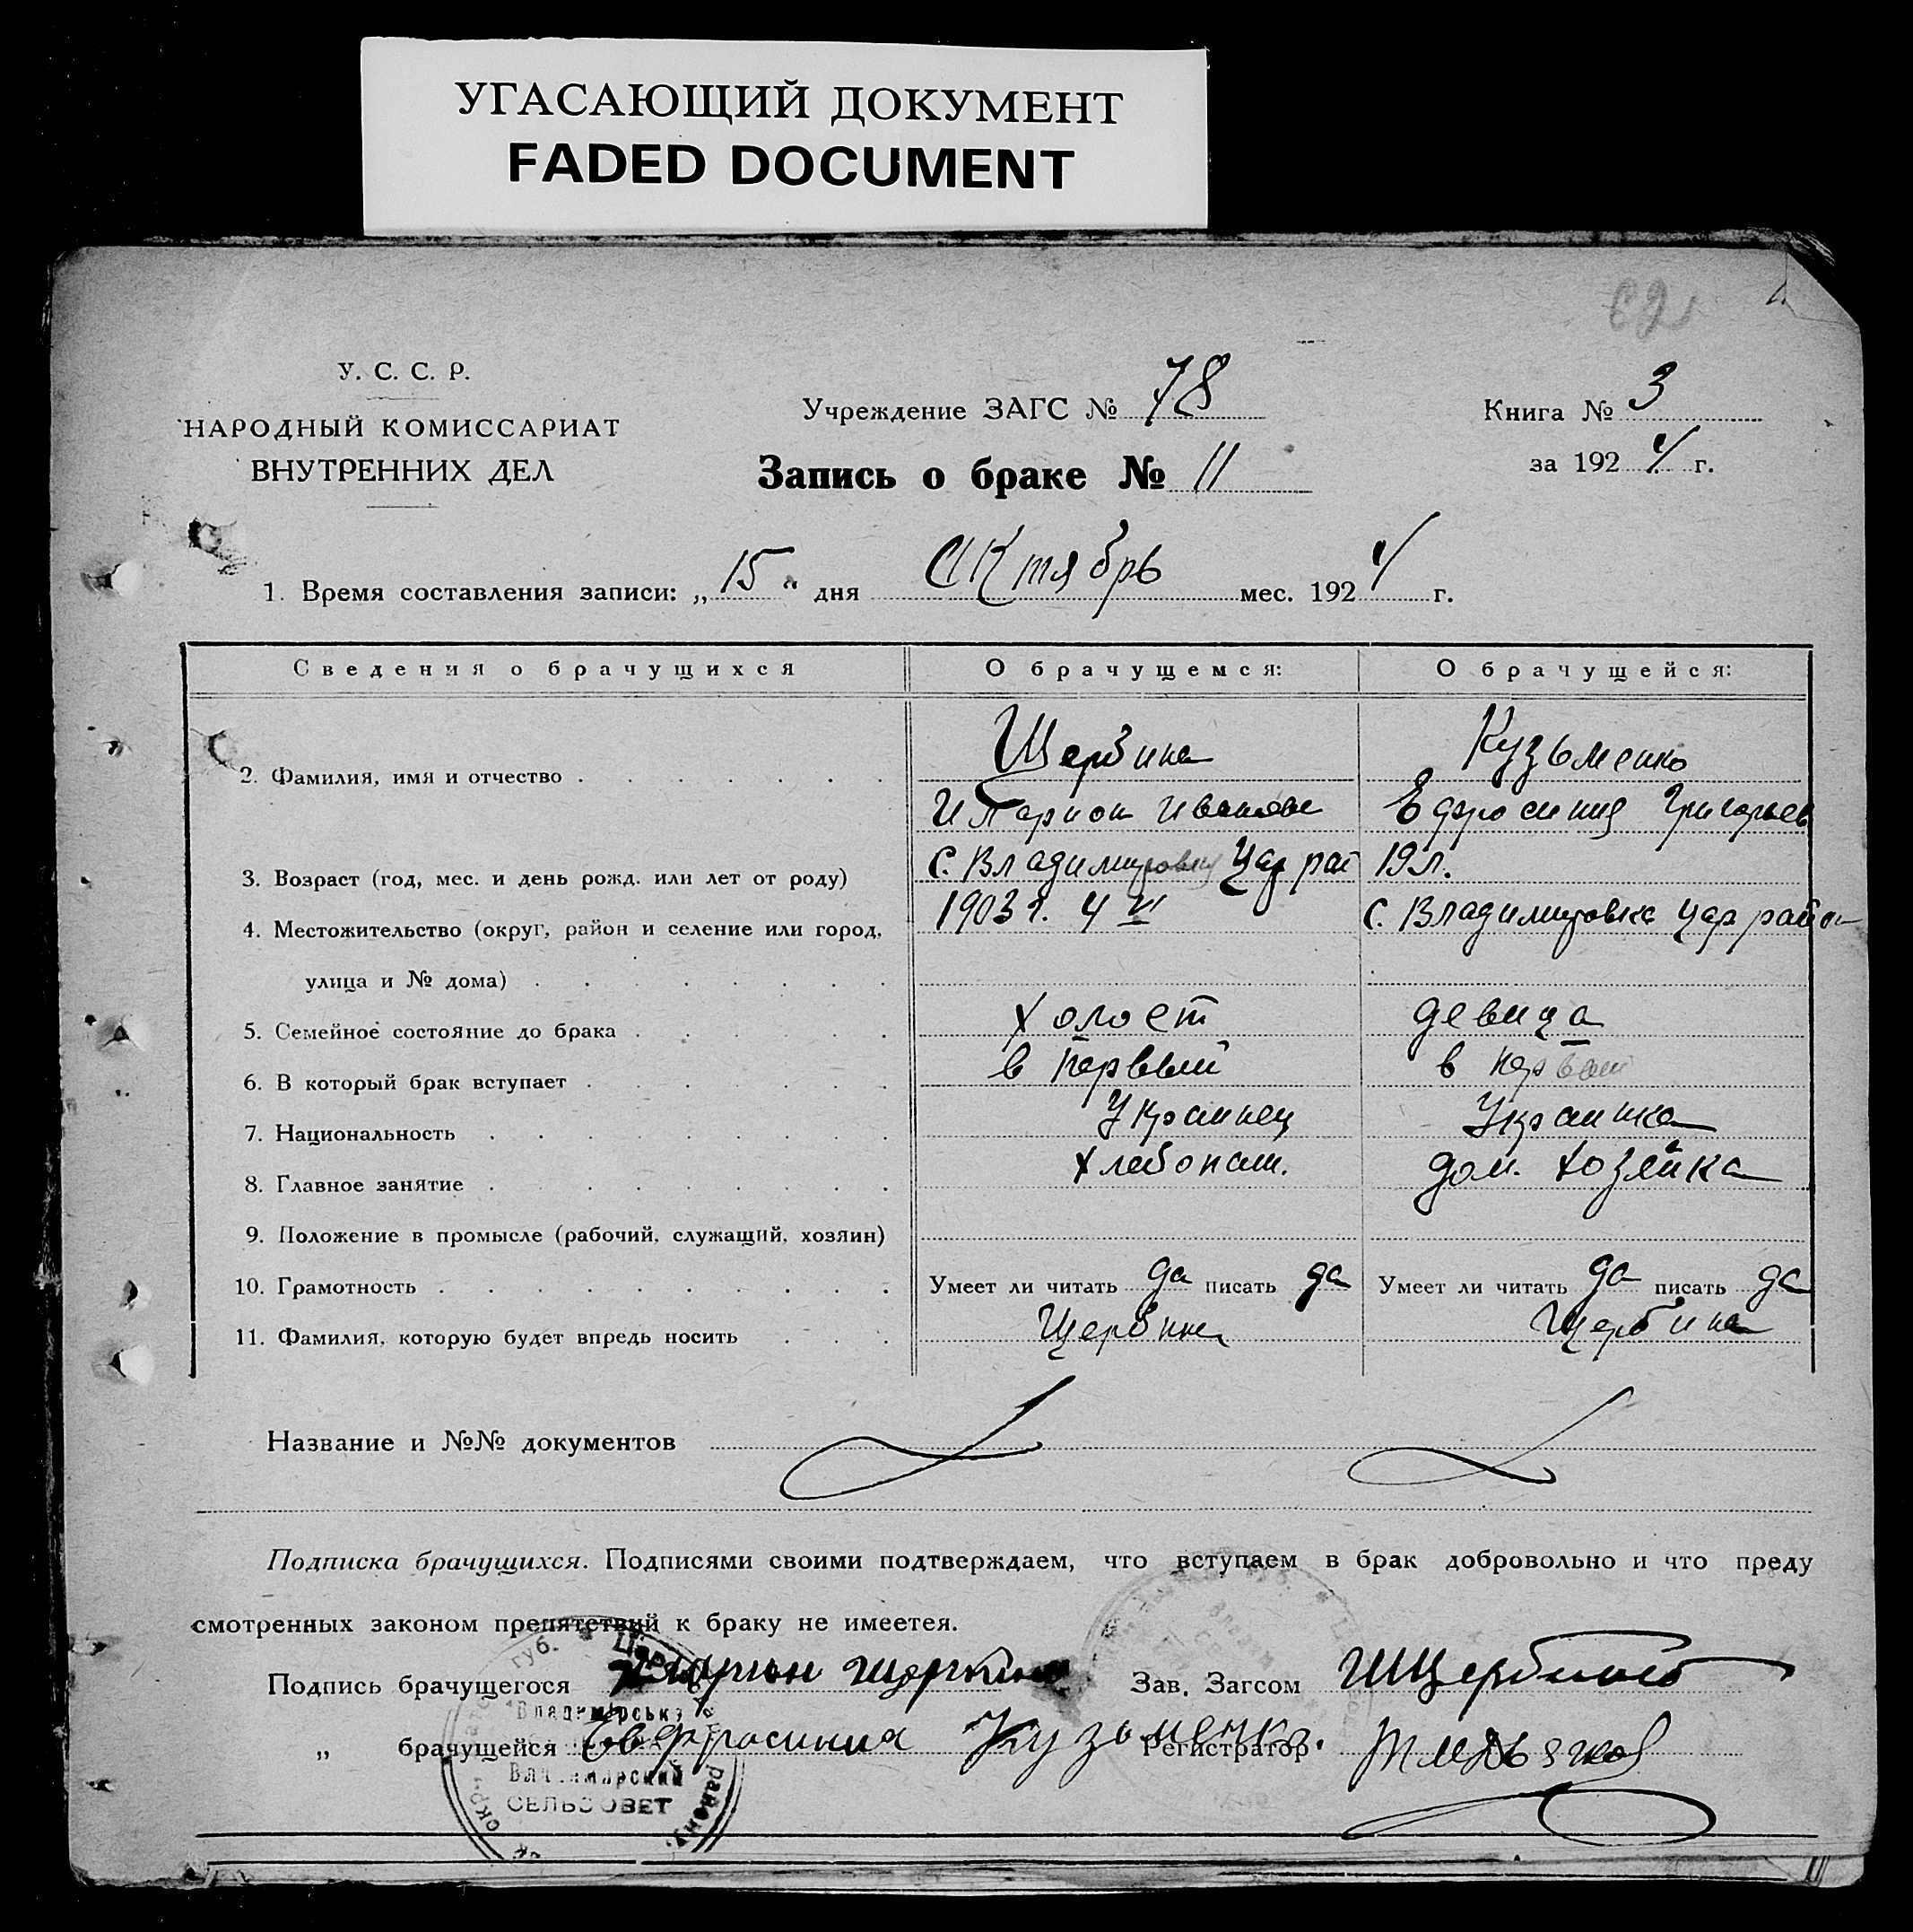 УГАСАЮЩИЙ ДОКУМЕНТ
FADED DOCUMENT
У. С. С. Р.
НАРОДНЫЙ КОМИССАРИАТ
ВНУТРЕННИХ ДЕЛ
Учреждение ЗАГС № 78
Книга № 3
Запись о браке № 11
за 1924 г.
1. Время составления записи: „15“ дня Октябрь мес. 1924 г.
Сведения о брачущихся О брачущемся: О брачущейся:
2. Фамилия, имя и отчество Щербина Кузьменко
Иларион Иванов Ефросиния Григорьев
3. Возраст (год, мес. и день рожд. или лет от роду) с. Владимировка Цар рай 19 л.
4. Местожительство (округ, район и селение или город, 1903 г. 4 VI с. Владимировка Цар район
улица и № дома)
5. Семейное состояние до брака холост девица
6. В который брак вступает в первый в первый
7. Национальность Украинец Украинка
8. Главное занятие хлебопаш. дом. хозяйка
9. Положение в промысле (рабочий, служащий, хозяин)
10. Грамотность Умеет ли читать да писать да Умеет ли читать да писать да
11. Фамилия, которую будет впредь носить Щербина Щербина
Название и №№ документов
Подписка брачущихся. Подписями своими подтверждаем, что вступаем в брак добровольно и что преду
смотренных законом препятствий к браку не имеетея.
Подпись брачущегося Иларион Зав. Загсом
„ брачущейся Евфросиния Кузьменко. Регистратор
губ. Цар
Владимірська
Владимирский
СЕЛЬСОВЕТ
району.
окр.